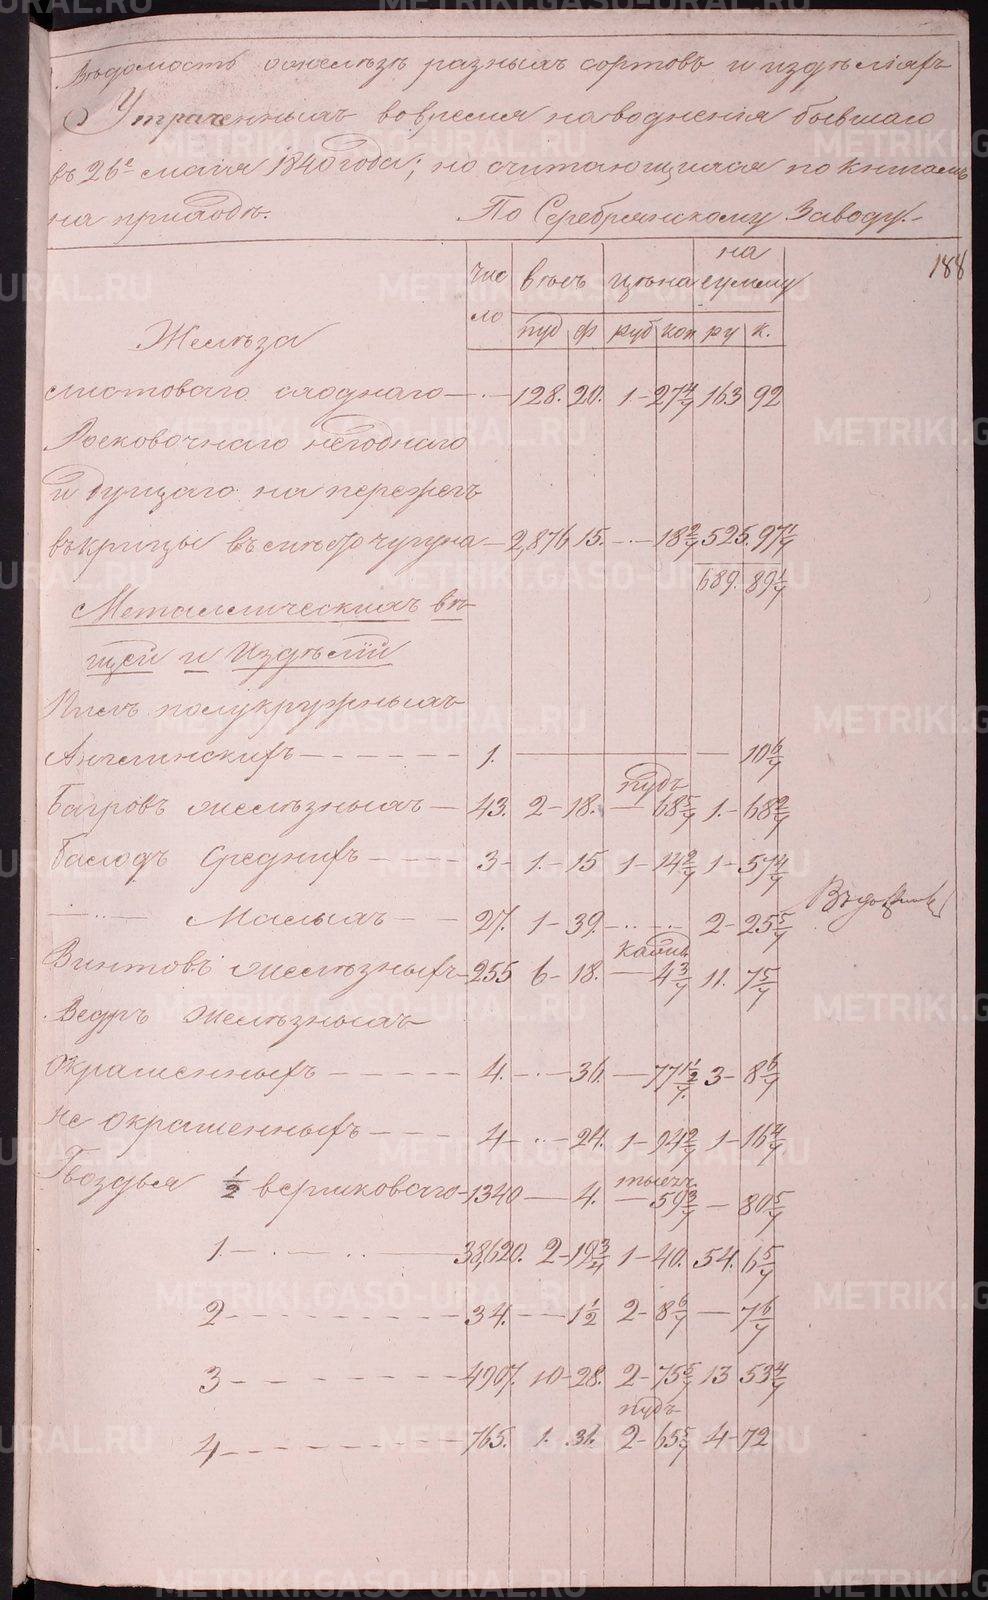 Ведомость о железе разных сортов и изделиях
Утраченных во время наводнения бывшаго
въ 26е мая 1840 года; но считающихся по книгамъ
на приходе. По Серебрянскому Заводу.
188
Чис ло вѣсъ цѣна на сумму
пуд ф руб коп ру к.
Желѣза
листоваго годнаго — 128. 20. 1 - 27 4/7 163 92
негоднаго
и идущаго на пережегъ
въ крицы въ место чугуна — 2,876 15. — 18 2/7 525. 97 4/7
689. 89 4/7
Металлическихъ ве-
щей и Изделiй
Пилъ полукружныхъ
Англинскихъ — 1. — 10 6/7
пудъ
Багровъ железныхъ — 43. 2 - 18. — 68 5/7 1. - 68 2/7
Балодъ Среднихъ — 3 - 1. - 15 1 - 14 2/7 1 - 57 4/7
Малыхъ — 27. 1 - 39. — 2 - 25 5/7
Винтовъ железныхъ - 255 6 - 18. — 4 3/7 11. 7 5/7
Ведръ Железныхъ
окрашенныхъ — 4. — 36. — 77 1/2/7. 3 - 8 6/7
не окрашенныхъ — 4 — 24. 1 - 94 2/7 1 - 16 4/7
тысяч
Гвоздья 1/2 вершковаго - 1340 — 4. — 59 3/7 — 80 5/7
1. — 38,620. 2 - 19 3/4 1 - 40. 54. 6 5/7
2 — 34. — 1 1/2 2 - 8 6/7 — 7 6/7
3 — 4907. 10 - 28. 2 - 75 5/7 13 53 4/7
пудъ
4 — 765. 1. 31. 2 - 65 5/7 4 - 72